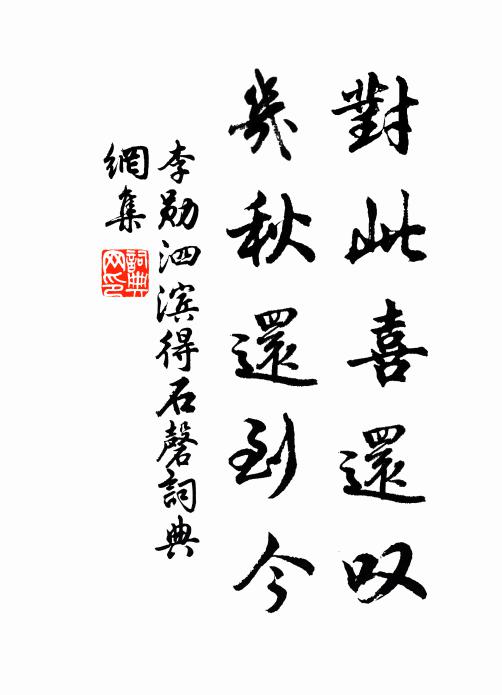 對此喜還叹
幾秋還到今
李勋泗滨得石磬詞典
網集
詞典
网印